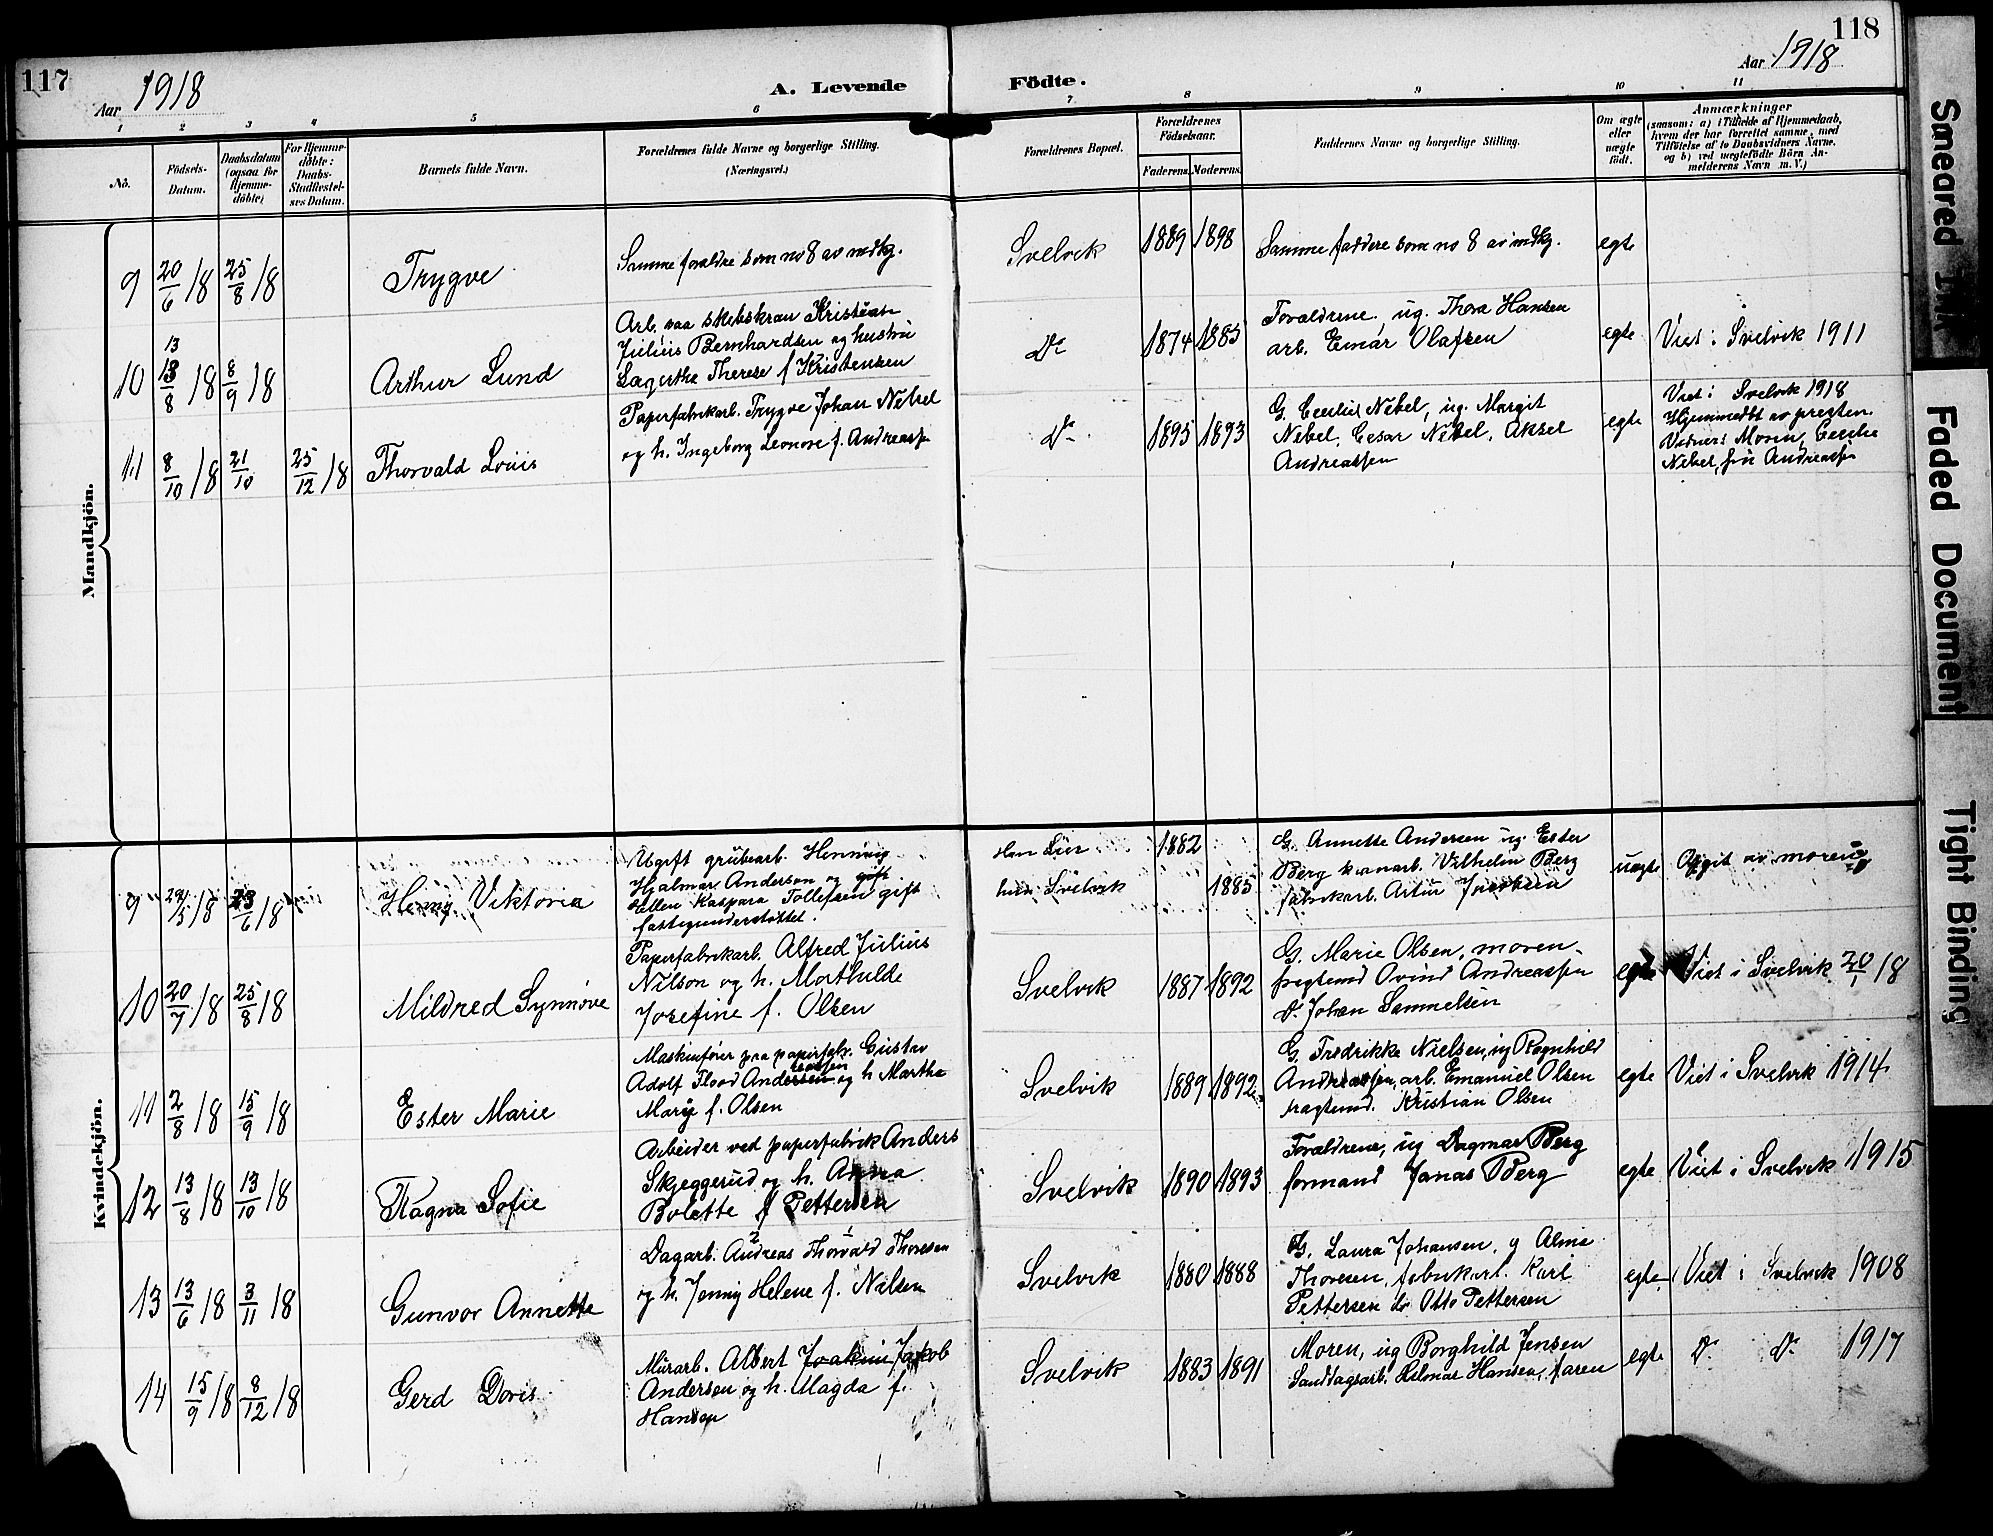 117
Aar 1918
A. Levende Födte.
118
Aar 1918
1 2 3 4 5 6 7 8 9 10 11
No.
Födsels-
Datum.
Daabsdatum
(ogsaa for
Hjemme-
döbte)
For Hjemme-
döbte:
Daabs-
Stadfestel-
ses Datum.
Barnets fulde Navn.
Forældrenes fulde Navne og borgerlige Stilling.
(Næringsvei.)
Forældrenes Bopæl.
Forældrenes
Födselsaar.
Faderens. Moderens.
Faddernes Navne og borgerlige Stilling.
Om ægte
eller
uægte
födt.
Anmærkninger
(saasom: a) i Tilfælde af Hjemmedaab,
hvem der har forrettet samme, med
Tilföielse af to Daabsvidners Navne.
og b) ved uægtefödte Börn An-
melderens Navn m. V.)
Mandkjön.
9 20/6 18 25/8 18 Trygve
Samme foreldre som no 8 av mdkj.
Svelvik 1889 1898
Samme faddere som no 8 av mdkj.
egte
10 13 13/8 18 8/9 18 Arthur Lund
Arb. paa skibskran Kristian
Julius Bernhardsen og hustru
Lagertha Therese f Kristensen
Do 1874 1885
Forældrene. ug. Thora Hansen
arb. Einar Olafsen
egte
Viet i Svelvik 1911
11 8/10 18 21/10 25/12 18 Thorvald Louis
Papirfabrikarb. Trygve Johan Nebel
og h. Ingeborg Leonore f. Andreassen
Do 1895 1893
G. Cecilie Nebel, ug. Margit
Nebel, Cesar Nebel, Aksel
Andreassen
egte
Viet i Svelvik 1918
Hjemmedbt av presten.
Vidner: Moren, Cecilie
Nebel, fru Andreassen
Kvindekjön.
9 18 23/6 18 Henny Viktoria
Ugift grubearb. Henning
Hjalmar Andersen og gift
Ellen Kaspara Tollefsen gift
fattigunderstöttet.
Han Lier
hun Svelvik
1882 1885
G. Annette Andersen ug. Ester
Berg kranarb. Vilhelm Berg
fabrikarb. Artur Jacobsen
uegte
Opgit av moren
10 20/7 18 25/8 18 Mildred Synnöve
Papirfabrikarb. Alfred Julius
Nilson og h. Morthilde
Josefine f. Olsen
Svelvik 1887 1892
G. Marie Olsen, moren
fragtemd Ovind Andreassen
Do Johan Sammelsen
egte
Viet i Svelvik 20/1 18
11 2/8 18 15/9 18 Ester Marie
Maskinförer paa papirfabr. Gustav
Adolf Flood Andersen og h Martha
Marie f. Olsen
Svelvik 1889 1892
G. Fredrikke Nielsen, ug Ragnhild
Andreassen, arb. Emanuel Olsen
fragtemd. Kristian Olsen
egte
Viet i Svelvik 1914
12 13/8 18 13/10 18 Ragna Sofie
Arbeider ved papirfabrik Anders
Skjeggerud og h. Anna
Bolette f Pettersen
Svelvik 1890 1893
Forældrene, ug Dagmar Berg
formand Jonas Berg
egte
Viet i Svelvik 1915
13 13/6 18 3/11 18 Gunvor Annette
Dagarb. Andreas Thorvald Thoresen
og h. Jenny Helene f. Nilsen
Svelvik 1880 1888
G. Laura Johansen, g Alma
Thoresen, fabrikarb. Karl
Pettersen do Otto Pettersen
egte
Viet i Svelvik 1908
14 15/9 18 8/12 18 Gerd Doris
Murarb. Albert Joakim Jakob
Andersen og h. Magda f.
Hansen
Svelvik 1883 1891
Moren, ug Borghild Jensen
Sanddagsarb. Hilmar Hansen, faren
egte
Do Do 1917
Smeared Ink
Faded Document
Tight Binding